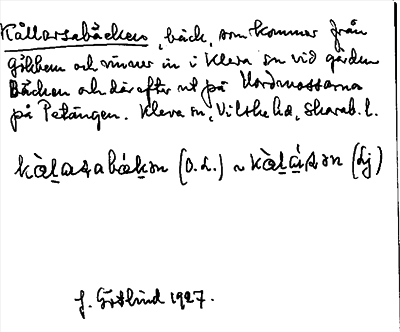 Kållarsabäcken, bäck, som kommer från
Gökhem och rinner in i Kleva sn vid gården
Bäcken och därefter ut på Hordmossarna
på Petängen. Kleva sn, Vilske hd, Skarab. l.
(O.L.) ~ (Lj)
J. Götlind 1927.